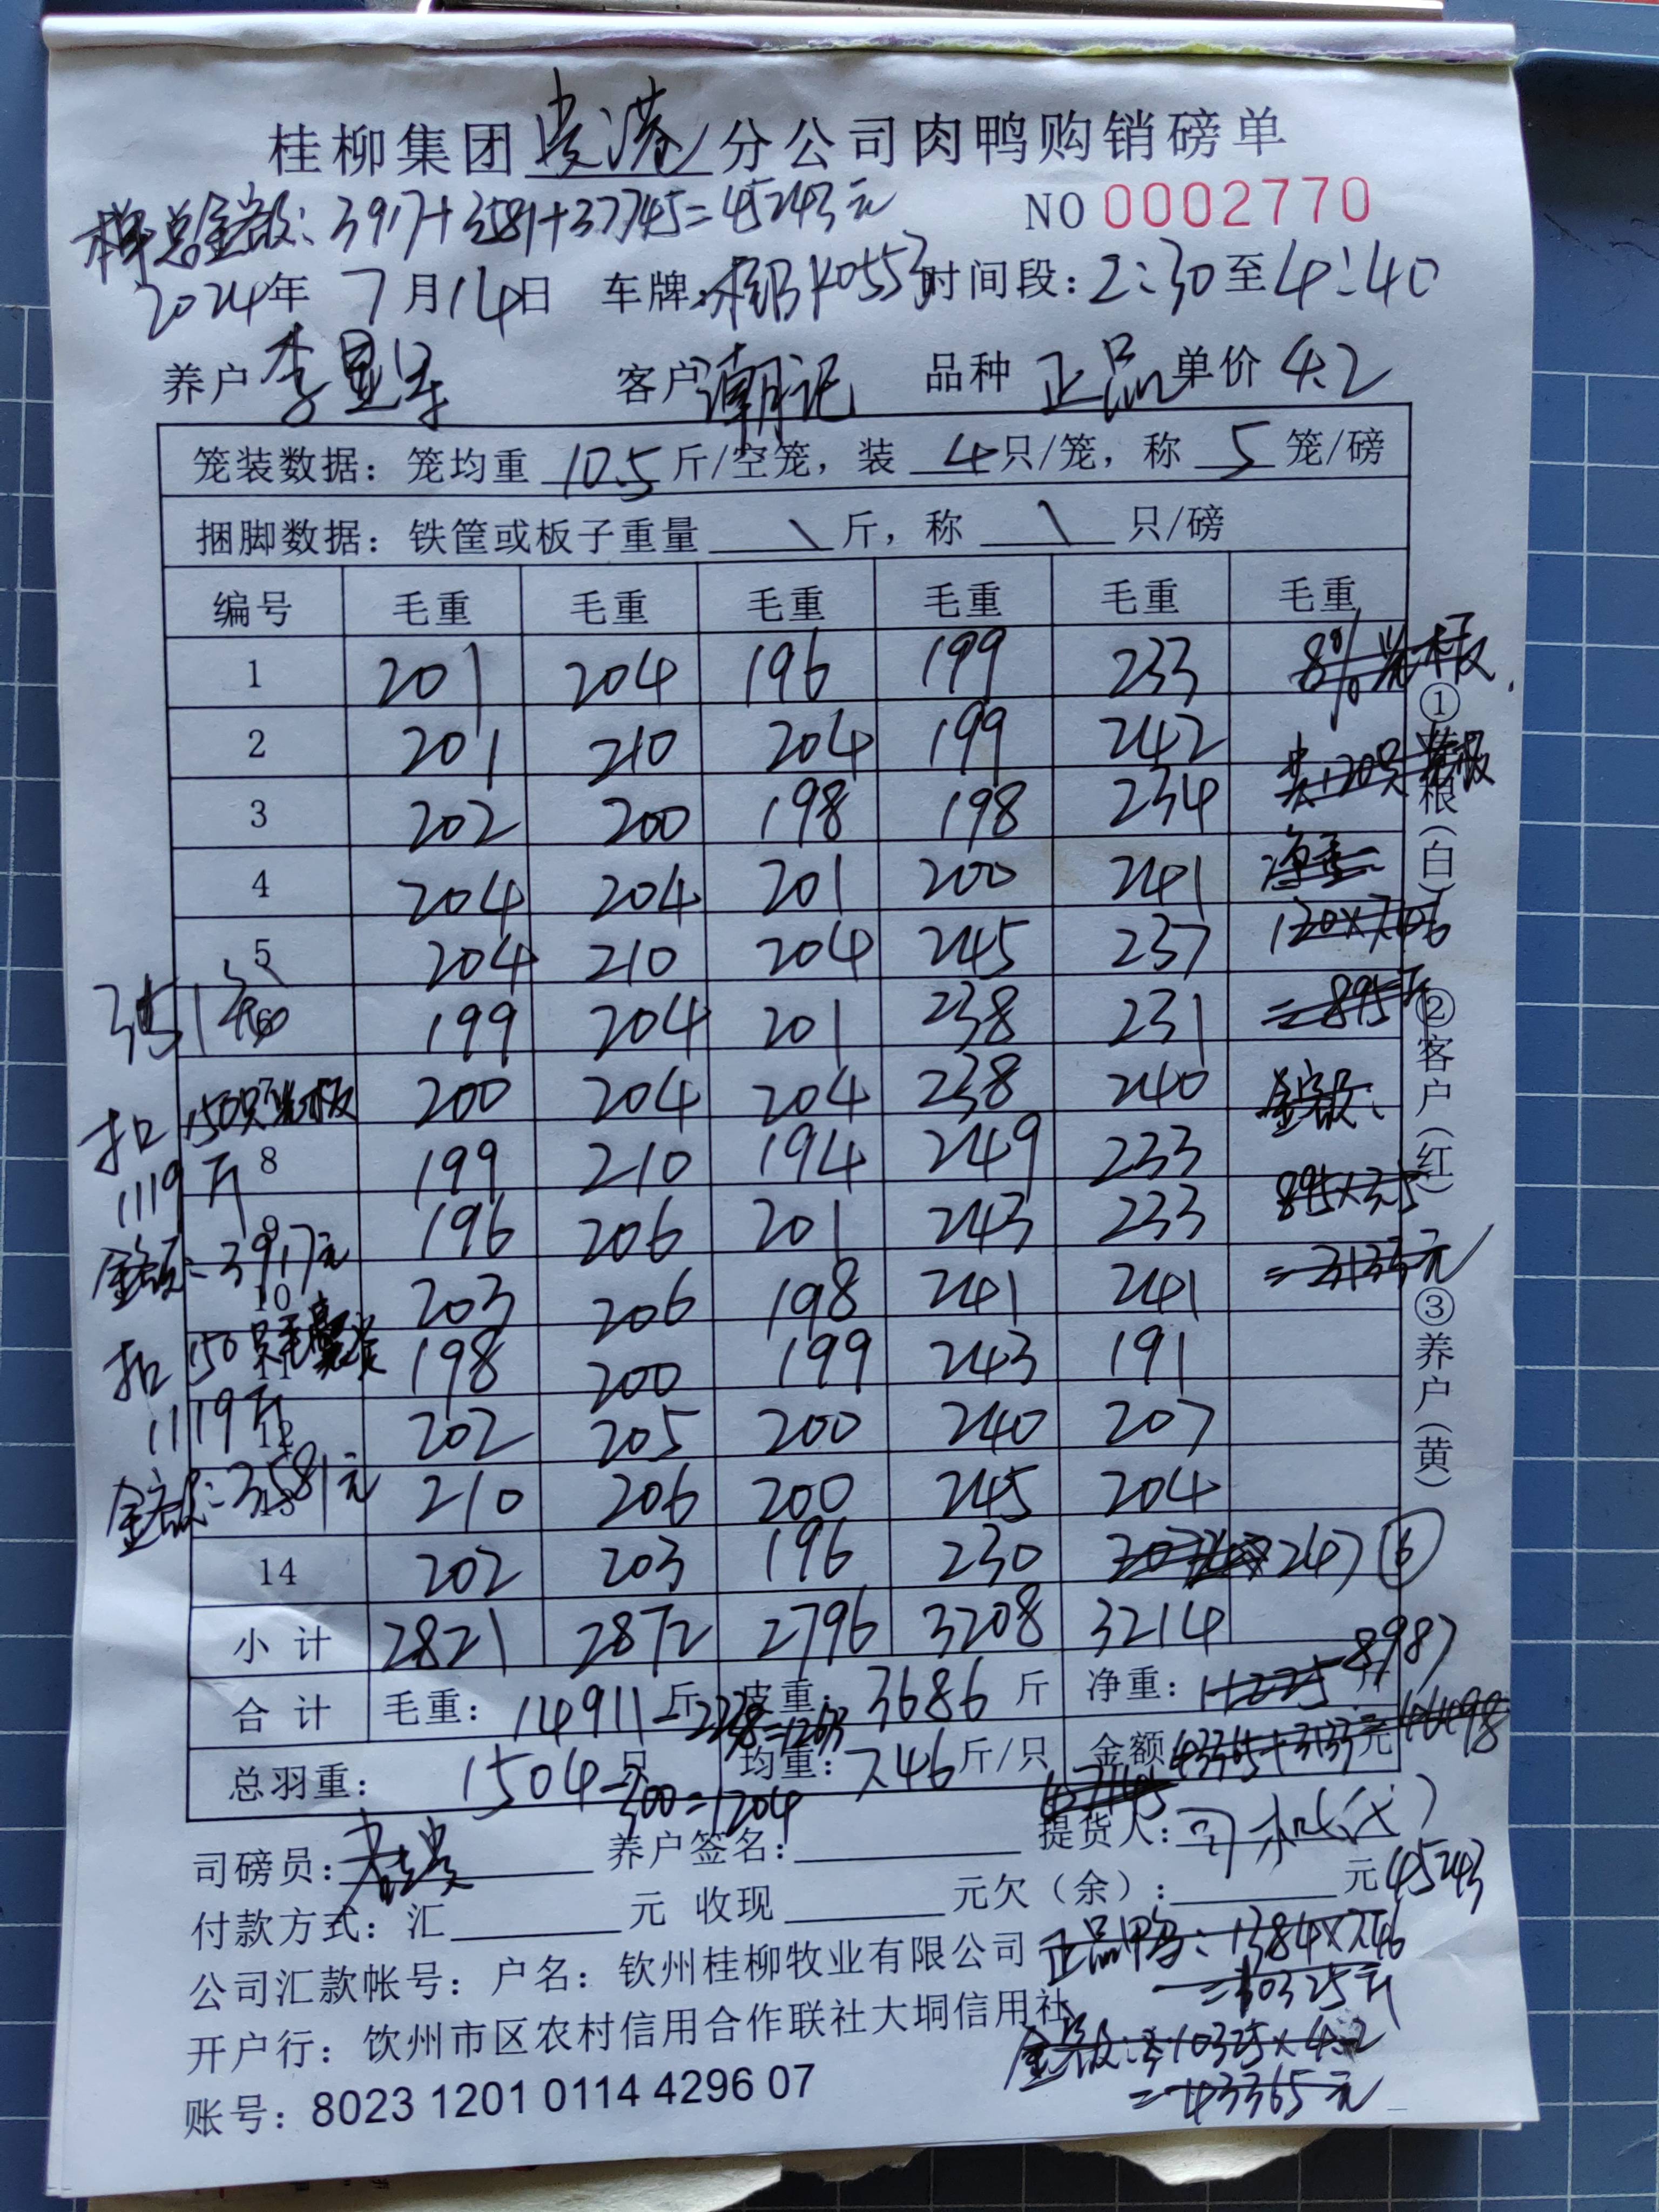 桂柳集团贵港分公司肉鸭购销磅单
总金额: 3917+3581+37745=45243元
NO 0002770
2024年 7月14日 车牌: K0553 时间段: 2:30至4:40
养户 李显 客户 潮记 品种 正品 单价 4.2
笼装数据: 笼均重 10.5 斤/空笼, 装 4 只/笼, 称 5 笼/磅
捆脚数据: 铁筐或板子重量 \ 斤, 称 \ 只/磅
编号 毛重 毛重 毛重 毛重 毛重 毛重
1 201 204 196 199 233 8%光板
2 201 210 204 199 242 共120只光板
3 202 200 198 198 234
4 204 204 201 200 241 净重=
5 204 210 204 245 237 120×7.46
6 199 204 201 238 231 =895斤
200 204 204 238 240 金额:
8 199 210 194 249 233 895×3.5
9 196 206 201 243 233 =3133元
10 203 206 198 241 241
11 198 200 199 243 191
12 202 205 200 240 207
13 210 206 200 245 204
14 202 203 196 230 247 ⑥
3.5元
扣150只光板
1119斤
金额: 3917元
扣150只
1119斤
金额: 3581元
小计 2821 2872 2796 3208 3214
合计 毛重: 14911斤 皮重: 3686 斤 净重: 11225 斤 8987
总羽重: 1504只 均重: 7.46斤/只 金额 43365+3133元=46498
-300=1204
司磅员: 养户签名: 提货人: 司机(代)
付款方式: 汇 元 收现 元欠(余): 元 45243
公司汇款帐号: 户名: 钦州桂柳牧业有限公司
开户行: 钦州市区农村信用合作联社大垌信用社
账号: 8023 1201 0114 4296 07
正品甲鸟: 1384×7.46
=10325斤
金额: 10325×4.2
=43365元
①存根(白) ②客户(红) ③养户(黄)